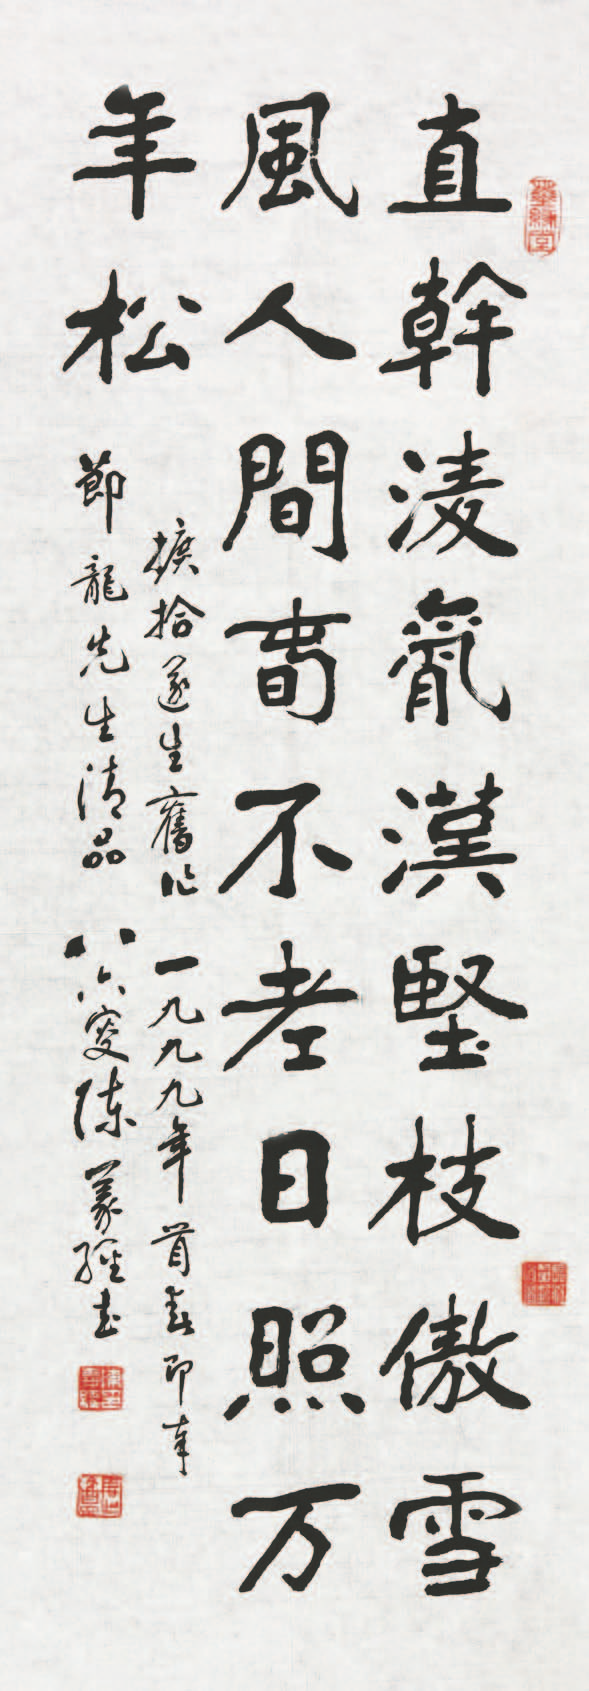 直幹淩霄漢堅枝傲雪
風人間春不老日照万
年松
摭拾遂生舊作
一九九九年首春即奉
節龍先生清品
八六叟陳羲經書